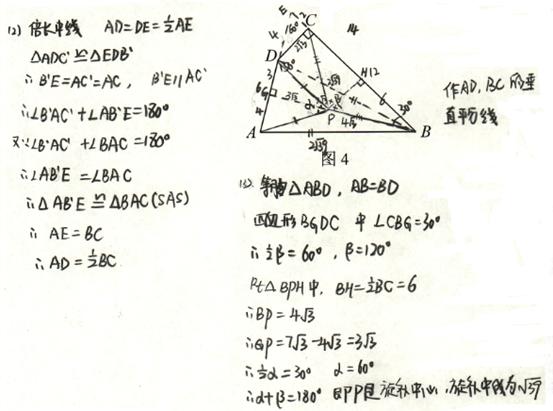 (2) 倍长中线 AD=DE=½AE
△ADC'≌△EDB'
∴B'E=AC'=AC, B'E∥AC'
∴∠B'AC'+∠AB'E=180°
又∵∠B'AC'+∠BAC=180°
∴∠AB'E=∠BAC
∴△AB'E≌△BAC(SAS)
∴AE=BC
∴AD=½BC
C
14
D
60°
H
12
6
30°
3√3
P
4√3
A
B
2√39
图4
作AD,BC的垂
直平分线
△ABD, AB=BD
四边形BGDC中∠CBG=30°
∴½β=60°, β=120°
Rt△BPH中, BH=½BC=6
∴BP=4√3
∴GP=7√3-4√3=3√3
∴½α=30° α=60°
∴α+β=180° 即P是旋补中心,旋补中线为√39